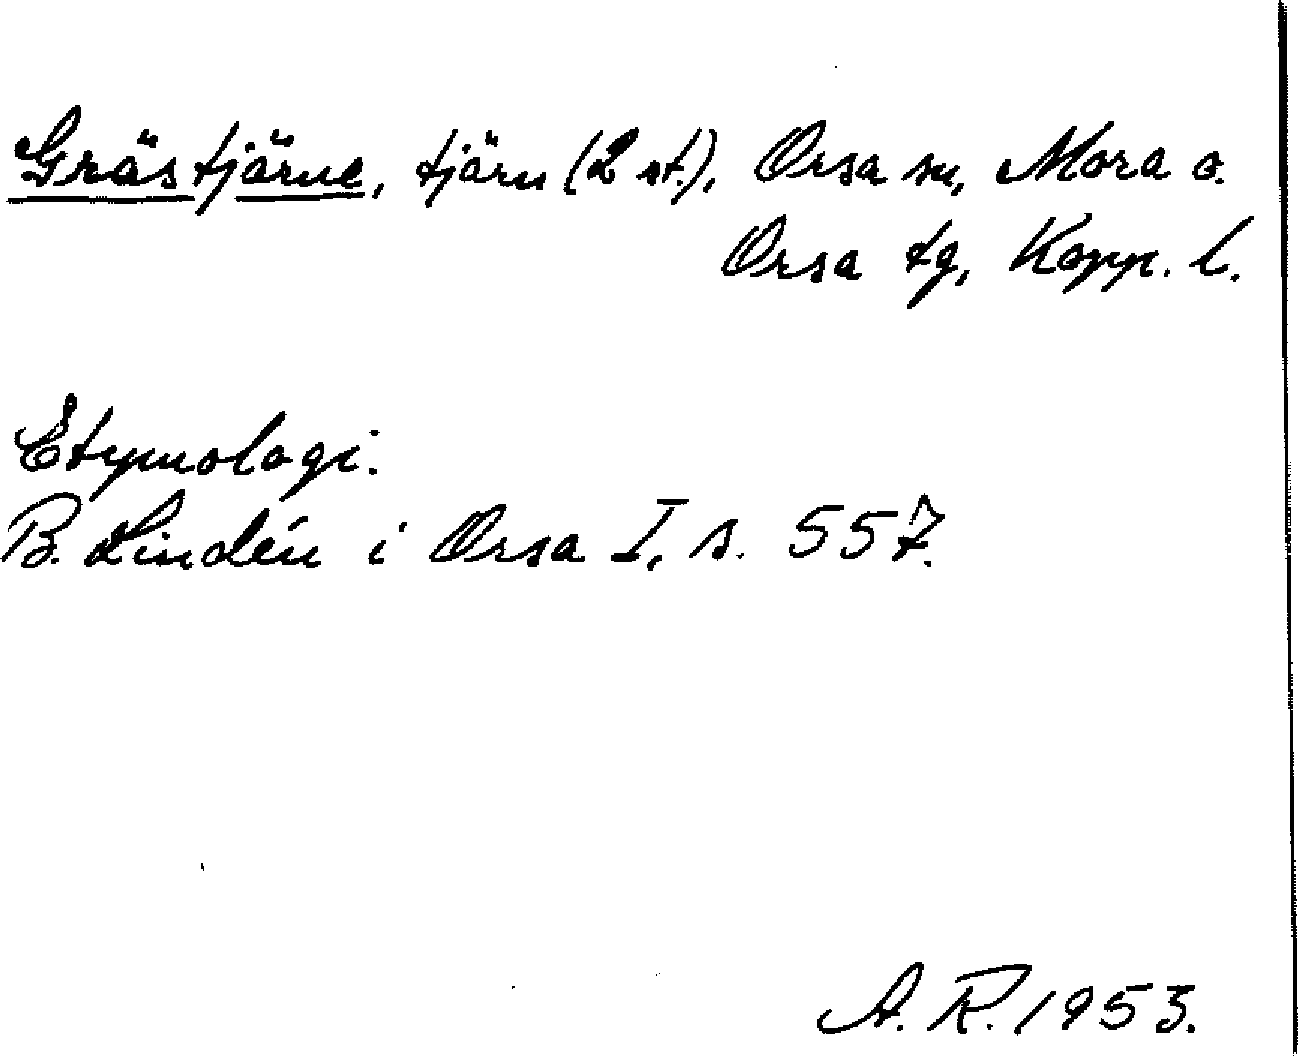 Grästjärne, tjärn (2 st.), Orsa sn, Mora o.
Orsa tg, Kopp. l.
Etymologi:
B. Lindén i Orsa I, s. 557.
A. R. 1953.